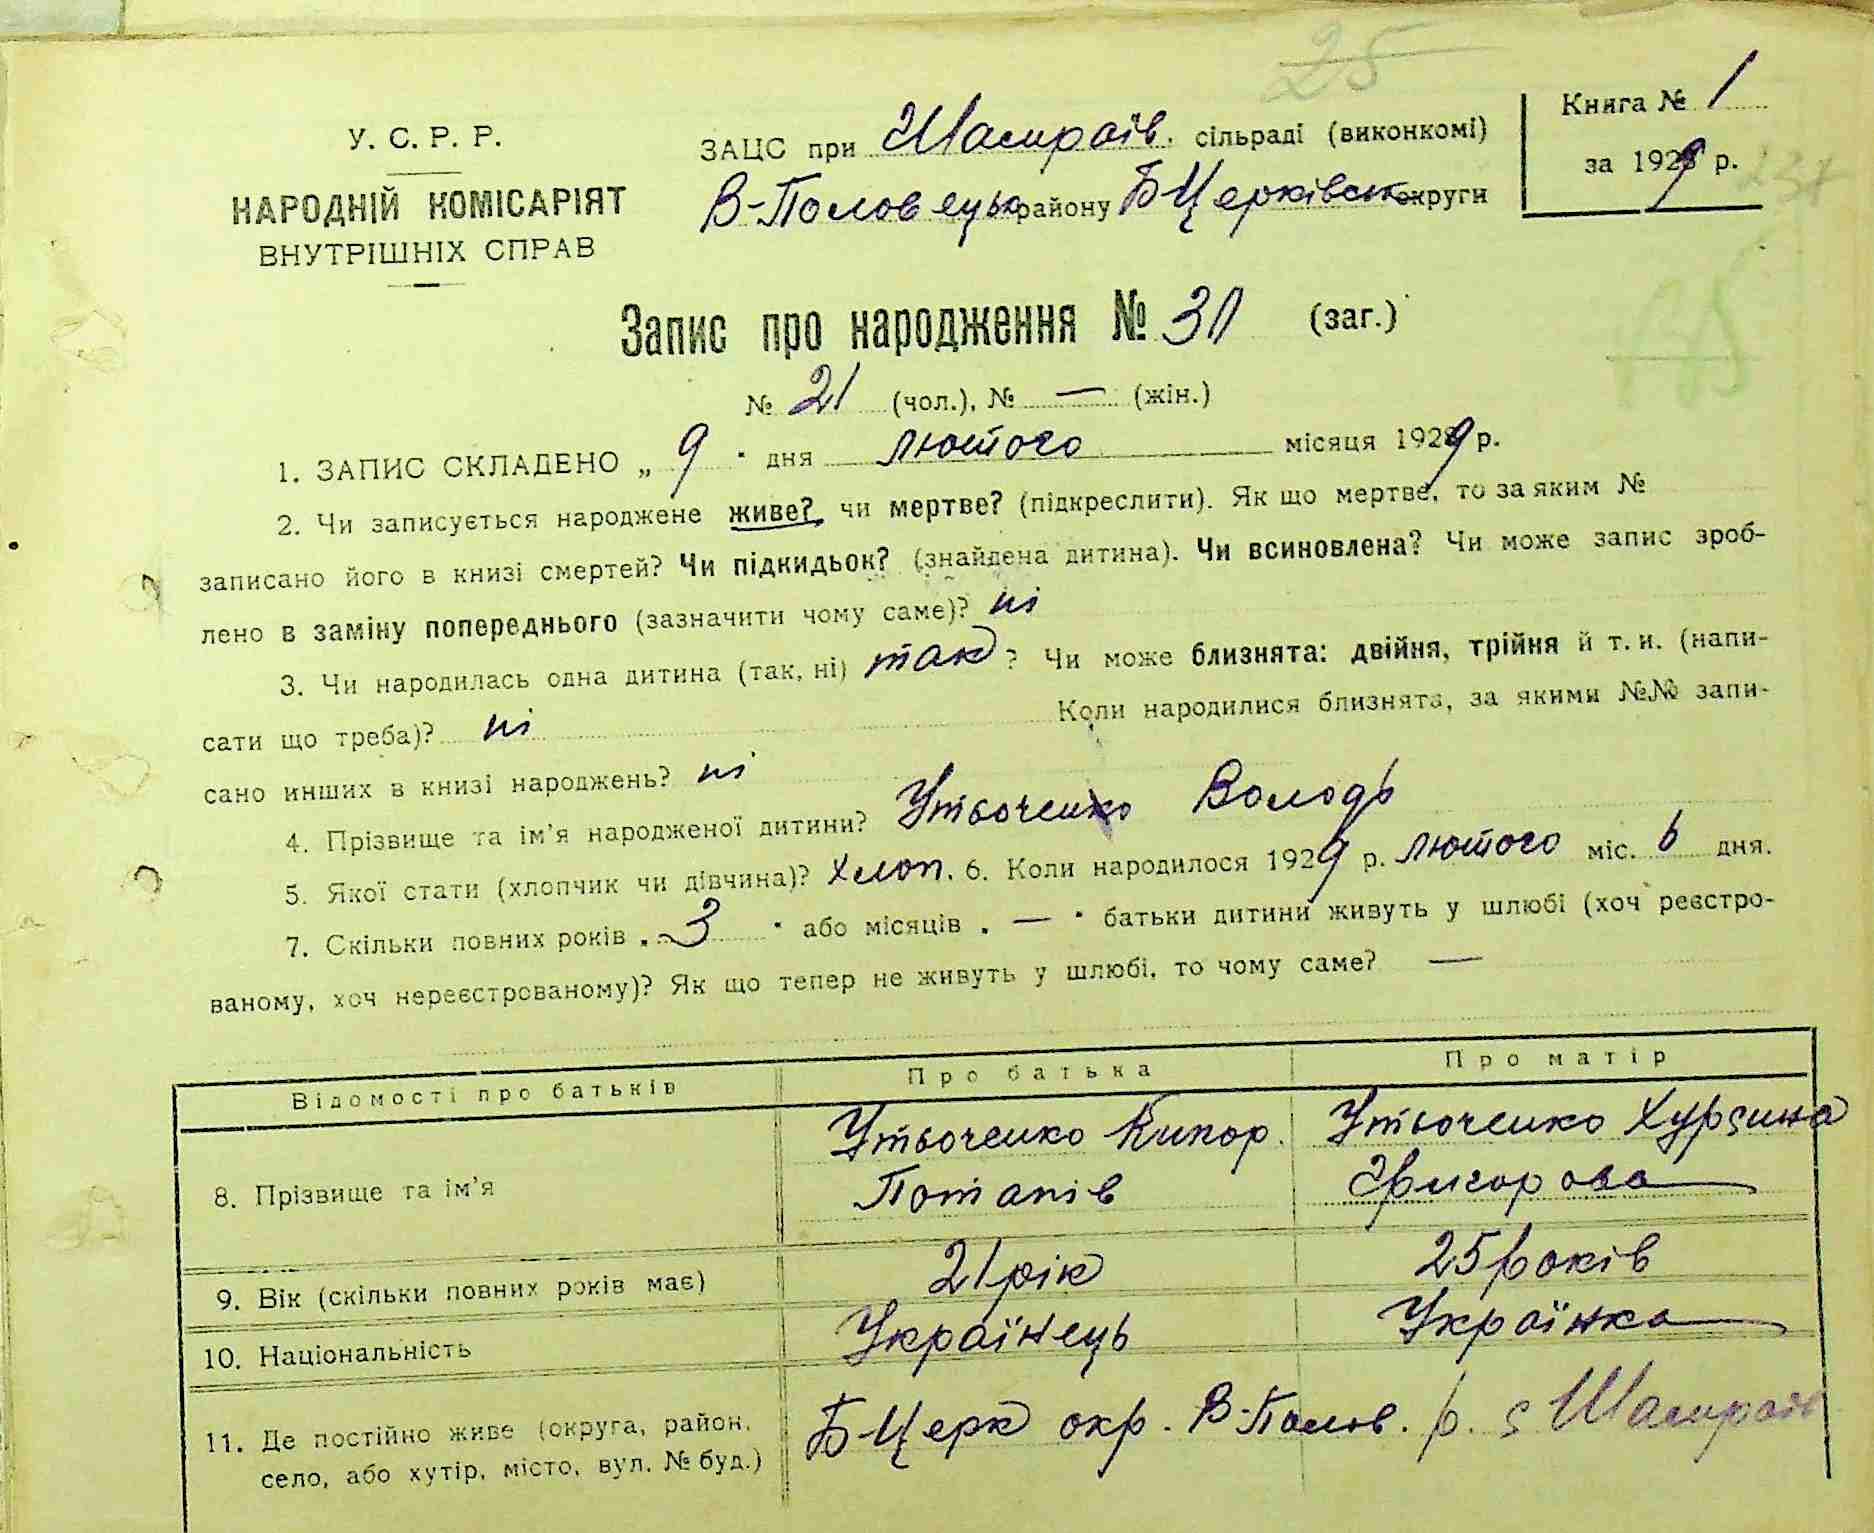 25
У. С. Р. Р.
НАРОДНІЙ КОМІСАРІЯТ
ВНУТРІШНІХ СПРАВ
ЗАЦС при Шамраїв. сільраді (виконкомі)
В-Половецьк району БЦерківськ округи
Книга № 1
за 1929 р.
237
Запис про народження № 30 (заг.)
№ 21 (чол.), № — (жін.)
1. ЗАПИС СКЛАДЕНО „ 9 " дня лютого місяця 1929 р.
2. Чи записується народжене живе? чи мертве? (підкреслити). Як що мертве, то за яким №
записано його в книзі смертей? Чи підкидьок? (знайдена дитина). Чи всиновлена? Чи може запис зроб-
лено в заміну попереднього (зазначити чому саме)? ні
3. Чи народилась одна дитина (так, ні) так ? Чи може близнята: двійня, трійня й т. и. (напи-
сати що треба)? ні Коли народилися близнята, за якими №№ запи-
сано инших в книзі народжень? ні
4. Прізвище та ім'я народженої дитини? Утвоченко Володь
5. Якої стати (хлопчик чи дівчина)? Хлоп. 6. Коли народилося 1929 р. лютого міс. 6 дня.
7. Скільки повних років „ 3 " або місяців „ — " батьки дитини живуть у шлюбі (хоч реєстро-
ваному, хоч нереєстрованому)? Як що тепер не живуть у шлюбі, то чому саме? —
Відомості про батьків Про батька Про матір
8. Прізвище та ім'я
Утвоченко Кипор.
Потапів
Утвоченко
Григорова
9. Вік (скільки повних років має) 21 рік 25 років
10. Національність Українець Українка
11. Де постійно живе (округа, район,
село, або хутір, місто, вул. № буд.)
БЦерк окр. В-Полов. р. с Шамраїв